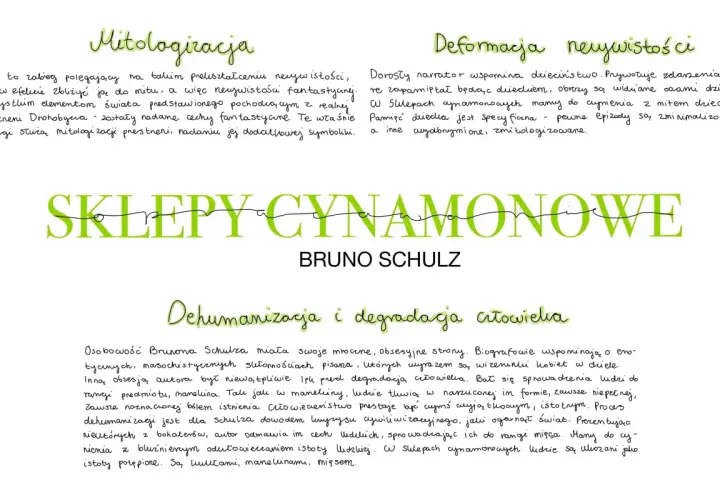 Mitologizacja
to zabieg polegający na takim przekształceniu rzeczywistości,
w efekcie zbliżyć ją do mitu, a więc rzeczywistości fantastycznej
elementom świata przedstawionego pochodzącym z realnej
Drohobycza - zostały nadane cechy fantastyczne. Te właśnie
służą mitologizacji przestrzeni, nadaniu jej dodatkowej symboliki.
Deformacja rzeczywistości
Dorosły narrator wspomina dzieciństwo. Przywołuje zdarzenia
zapamiętał będąc dzieckiem, obrazy są widziane oczami
W Sklepach cynamonowych mamy do czynienia z mitem
Pamięć dziecka jest specyficzna - pewne epizody są
a inne wyolbrzymione, zmitologizowane.
SKLEPY CYNAMONOWE
opracowanie
BRUNO SCHULZ
Dehumanizacja i degradacja człowieka
Osobowość Brunona Schulza miała swoje mroczne, obsesyjne strony. Biografowie wspominają o ero-
tycznych, masochistycznych skłonnościach pisarza, których wyrazem są wizerunki kobiet w dziele.
Inną obsesją autora był niewątpliwie lęk przed degradacją człowieka. Bał się sprowadzenia ludzi do
rangi przedmiotu, manekina. Tak jak w manekiny, ludzie tkwią w narzuconej im formie, zawsze niepełnej,
zawsze naznaczonej bólem istnienia. Człowieczeństwo przestaje być czymś wyjątkowym, istotnym. Proces
dehumanizacji jest dla Schulza dowodem kryzysu cywilizacyjnego, jaki ogarnął świat. Prezentując
niektórych z bohaterów, autor odmawia im cech ludzkich, sprowadzając ich do rangi mięsa. Mamy do czy-
nienia z bluźnierczym odczłowieczeniem istoty ludzkiej. W Sklepach cynamonowych ludzie są ukazani jako
istoty potępione. Są kukłami, manekinami, mięsem.